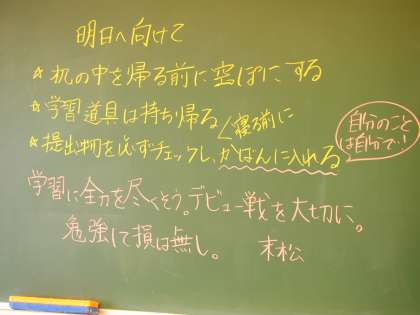 明日へ向けて
☆机の中を帰る前に空ぽにする
☆学習道具は持ち帰る
寝る前に
☆提出物を必ずチェックし、かばんに入れる
自分のこと
は自分で!
学習に全力を尽くそう。デビュー戦を大切に。
勉強して損は無し。 末松